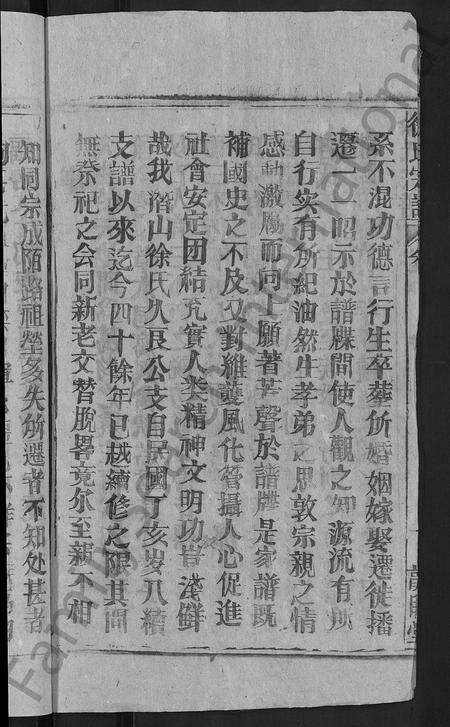 徐氏宗譜
系不混功德言行生卒葬所婚姻嫁娶遷徙播
遷一一昭示於譜牒間使人觀之知源流有所
自行实有所紀油然生孝弟之思敦宗親之情
感動激勵而同人願著芳聲於譜牒是家譜既
補國史之不及又對維護風化管攝人心促進
社會安定团結充實人类精神文明功豈淺鮮
哉我潛山徐氏久良公支自民國丁亥岁八續
支譜以來迄今四十餘年已越續修之限其間
無祭祀之会同新老交替脫畧竟尔至親不相
知同宗成陌路祖塋多失所遷者不知处甚者